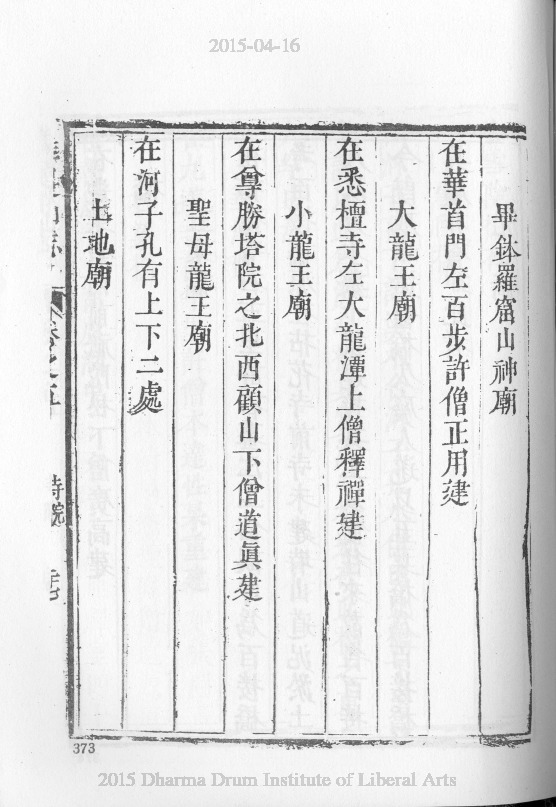 2015-04-16
畢鉢羅窟山神廟
在華首門左百步許僧正用建
大龍王廟
在悉檀寺左大龍潭上僧釋禪建
小龍王廟
在尊勝塔院之北西顧山下僧道眞建
聖母龍王廟
在河子孔有上下二處
土地廟
卷之五
寺院
373
2015 Dharma Drum Institute of Liberal Arts